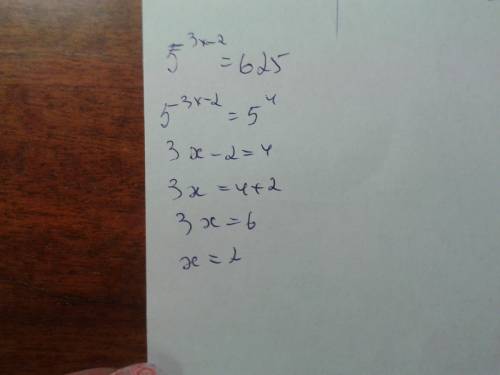 5^{3x-2} = 625
5^{3x-2} = 5^4
3x - 2 = 4
3x = 4+2
3x = 6
x = 2